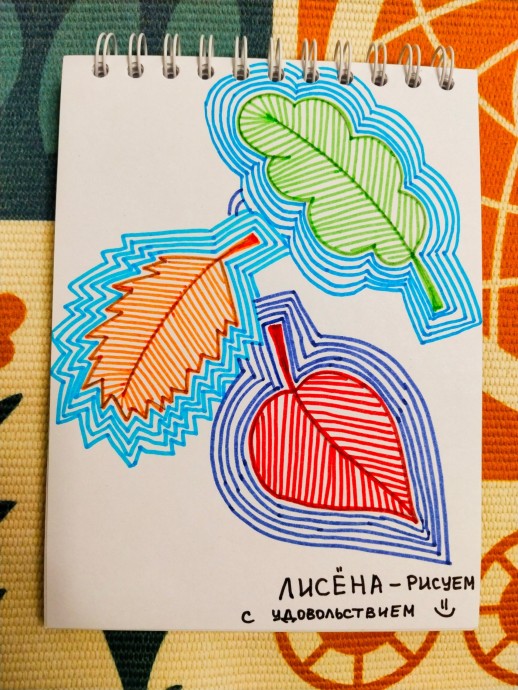 ЛИСЁНА - РИСУЕМ
С УДОВОЛЬСТВИЕМ =)